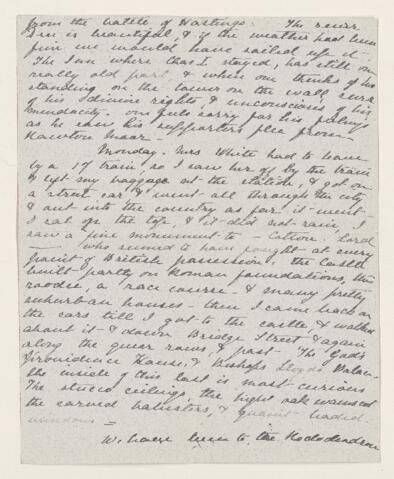 from the battle of Hastings. The river
Dee is beautiful, & if the weather had been
fine we would have sailed up it -
The Inn where Chas I. stayed, has still one
really old part, & when one thinks of his
standing on the tower on the wall, sure
of his divine rights, & unconscious of his
mendacity. one feels sorry for his feelings
as he saw his supporters flee from
Rowton Moor.
Monday. Mrs White had to leave
by a 17 train, so I saw her off by the train
& left my baggage at the station, & got on
a street car & went all through the city
& out into the country as far it went -
I sat on the top, & it did not rain. I
saw a fine monument to Lord
who seemed to have fought at every
point of British possession, the Castle
built partly on Roman foundations, the
roodee, a race course - & many pretty
suburban houses - then I came back on
the cars till I got to the castle, & walked
about it - & down Bridge Street & again
along the queer rows, & past The God's
Providence House, & Bishop Lloyds Palace.
the inside of this last is most curious
The stucco ceilings, the light oak wainscot
the carved balusters, & quaint leaded
windows =
We have been to the